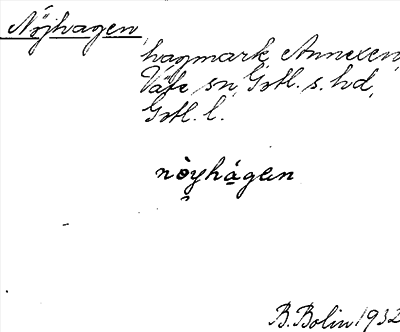 Nöjhagen,
hagmark, Annexen,
Väte sn, Gotl. s. hd,
Gotl. l.
nòyhágen
B. Bolin 1932